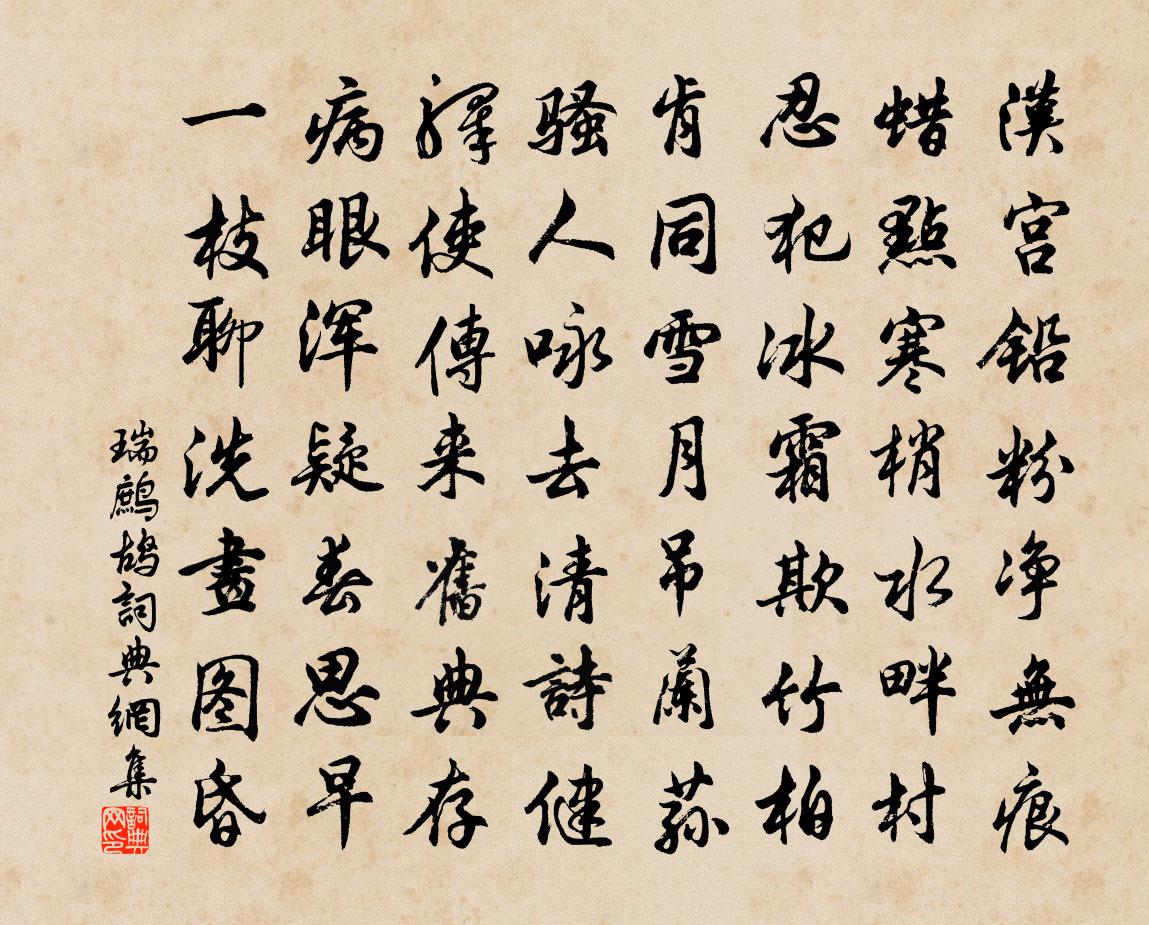 漢宫鉛粉净無痕
蜡點寒梢水畔村
忍犯冰霜欺竹柏
肯同雪月吊蘭蓀
騷人咏去清詩健
驛使傳来舊典存
病眼浑疑春思早
一枝聊洗畫图昏
瑞鷓鴣詞典網集
詞典网印